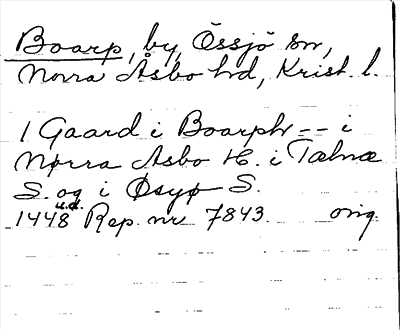 Boarp, by, Össjö sn,
Norra Åsbo hd, Krist. l.
1 Gaard i Boarph -- i
Nørra Asbo H. i Tælnæ
S. og i Øsyø S.
u.d.
1448 Rep. nr 7843. orig.